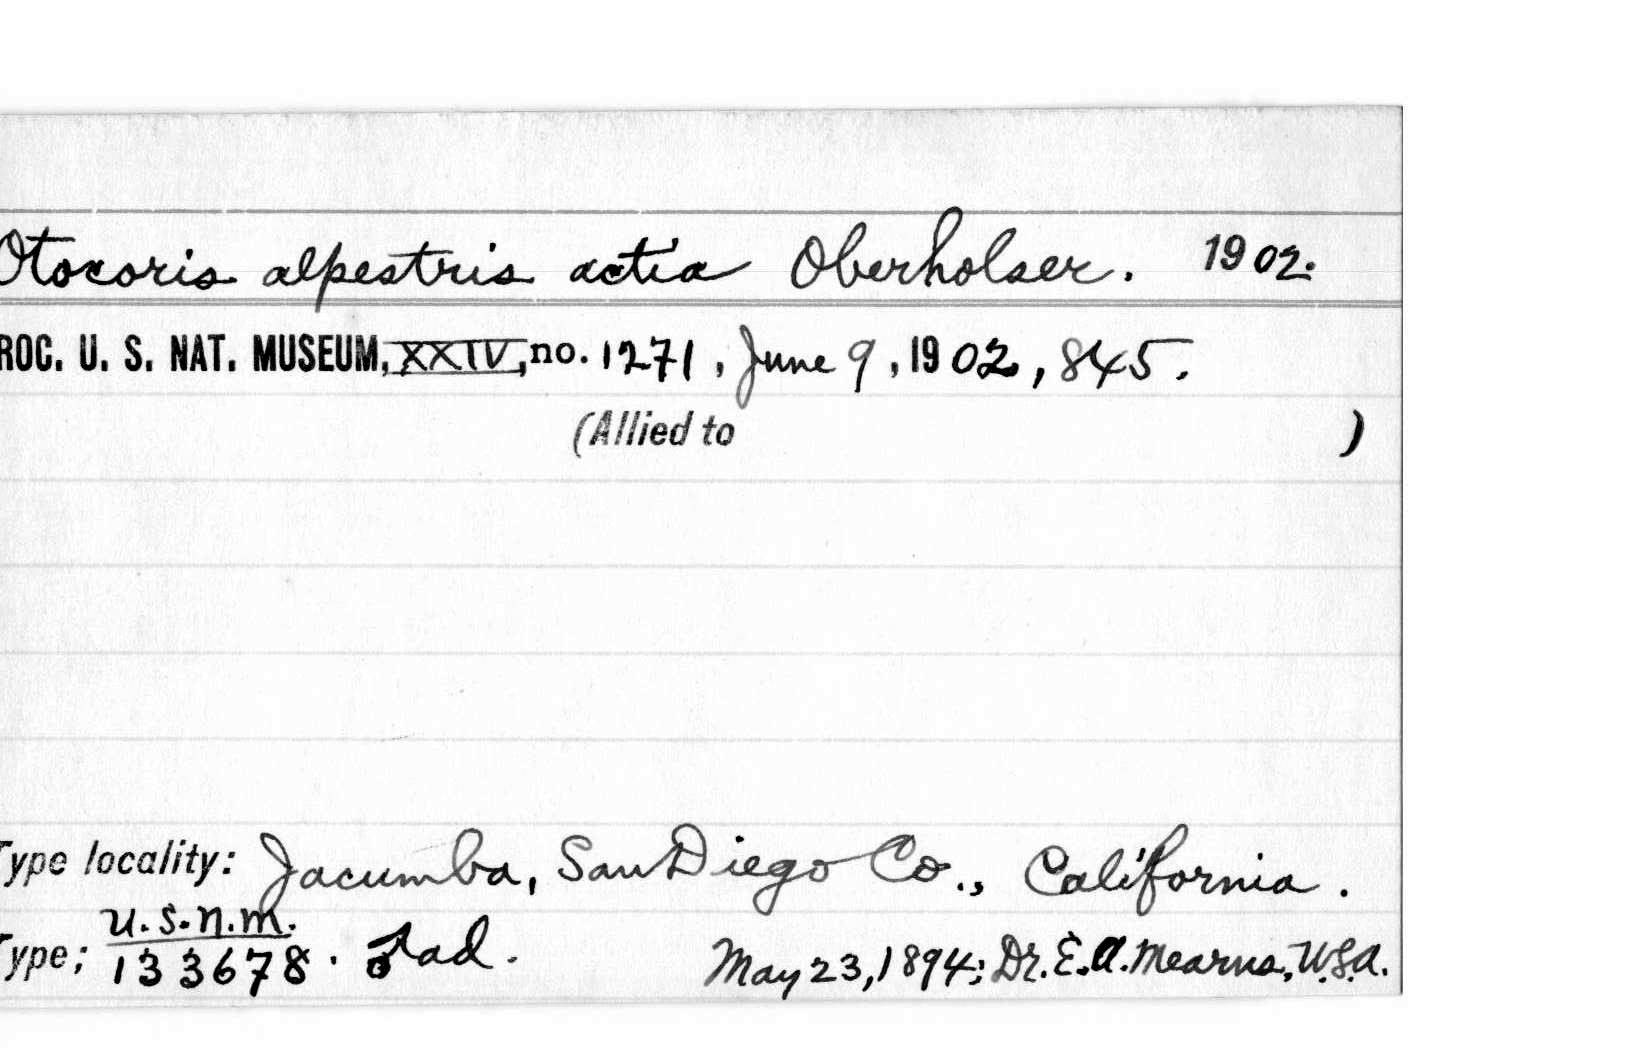 Otocoris alpestris actia Oberholser. 1902.
ROC. U. S. NAT. MUSEUM, XXIV, no. 1271, June 9, 1902, 845.
(Allied to )
Type locality: Jacumba, San Diego Co., California.
U.S.N.M.
Type; 133678. ♂ ad. May 23, 1894; Dr. E. A. Mearns, U.S.A.